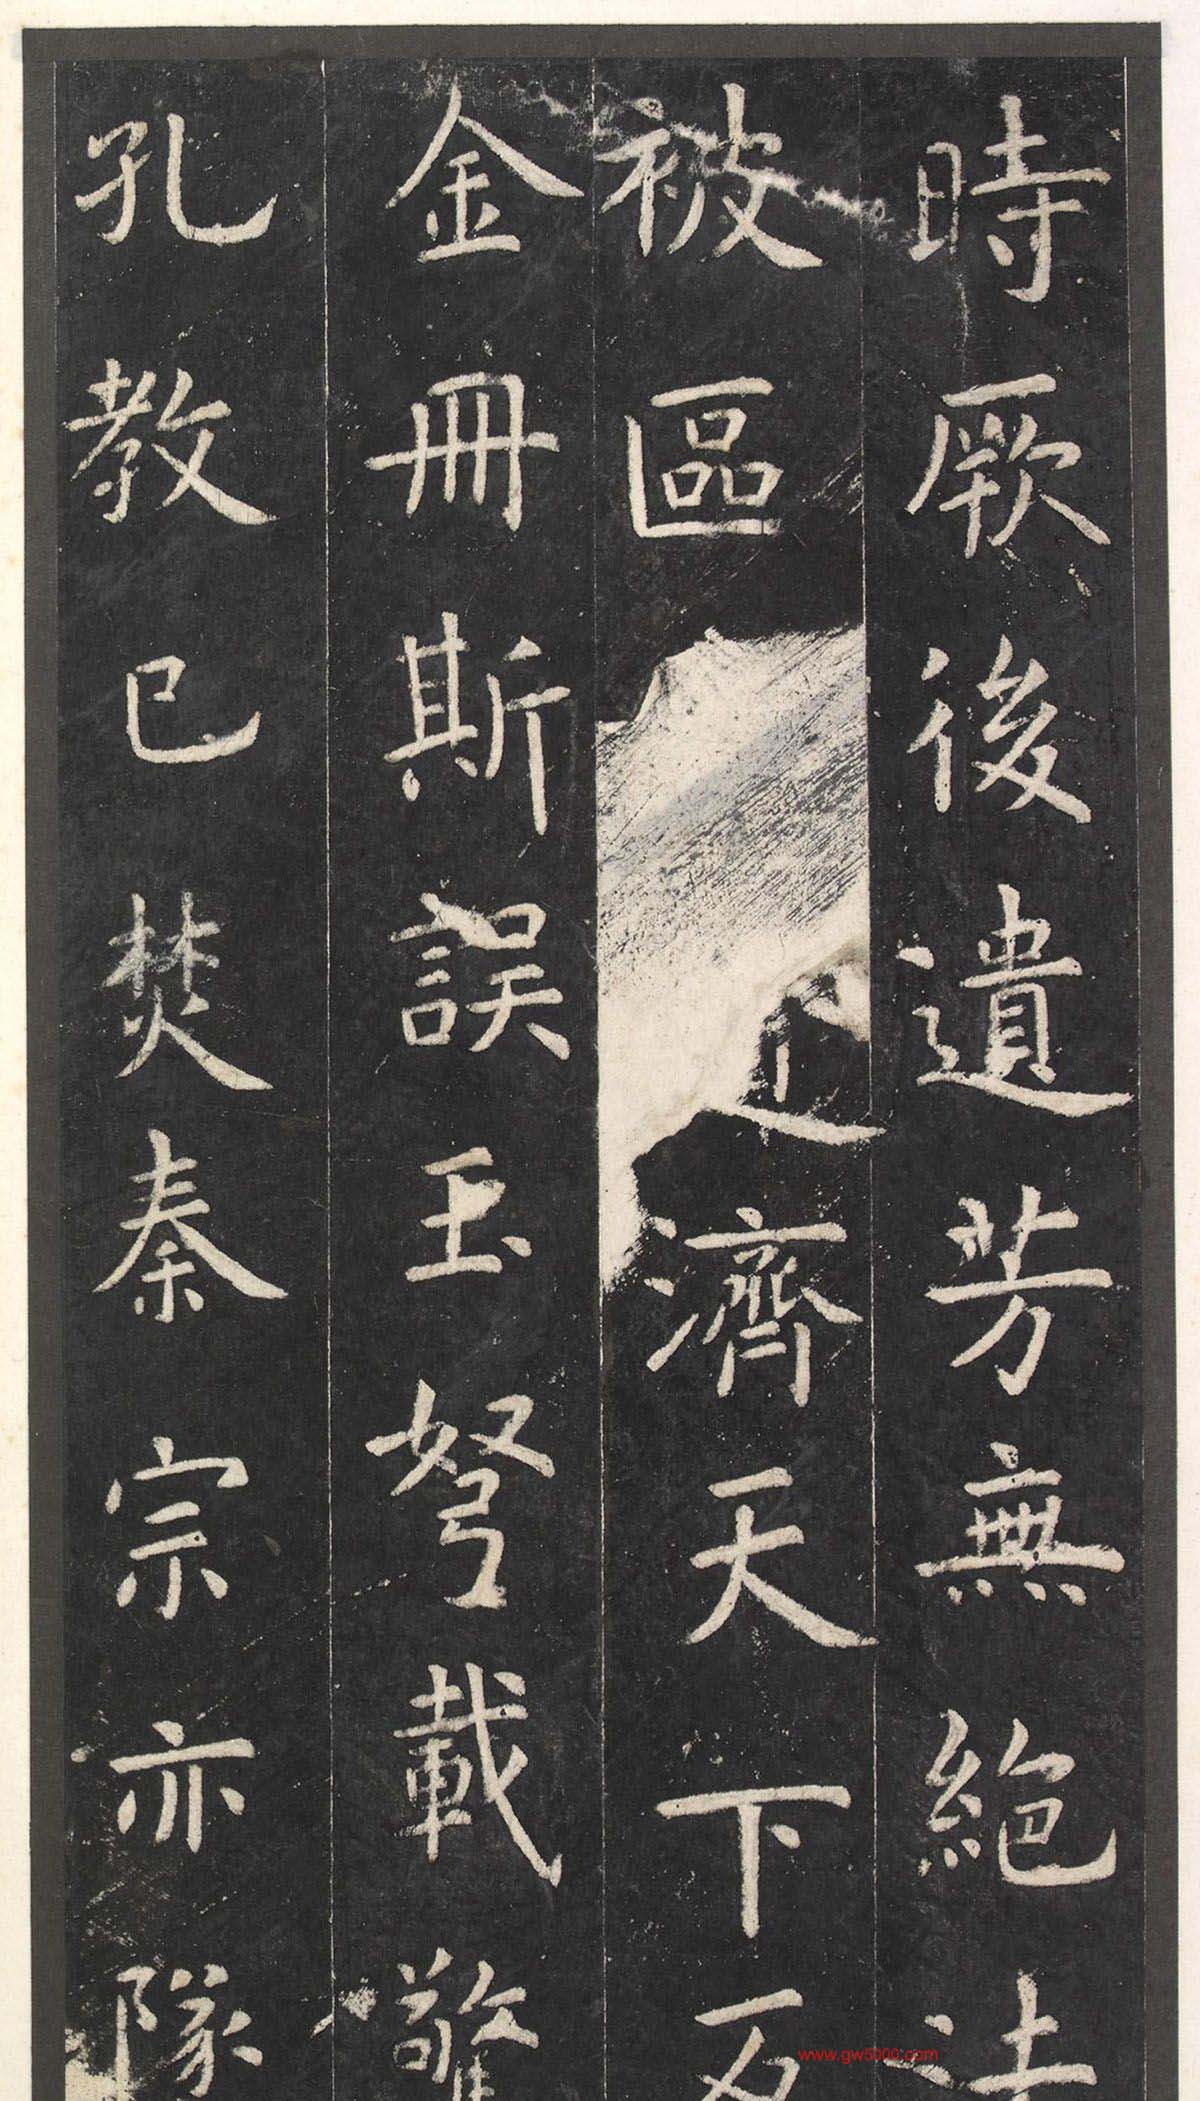 時厥後遺芳無絕法
被區濟天下及
金冊斯誤玉弩載驚
孔教已焚秦宗亦隊
www.gw5000.com